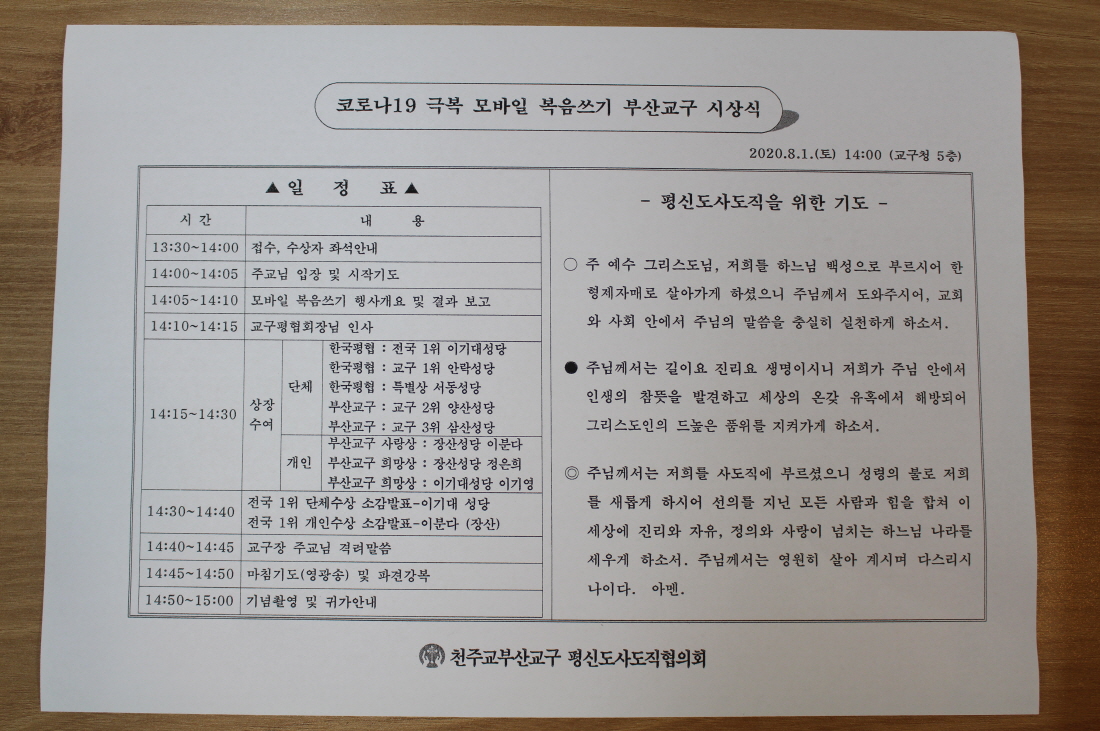 코로나19 극복 모바일 복음쓰기 부산교구 시상식
2020.8.1.(토) 14:00 (교구청 5층)
▲ 일 정 표 ▲
시 간 내 용
13:30~14:00 접수, 수상자 좌석안내
14:00~14:05 주교님 입장 및 시작기도
14:05~14:10 모바일 복음쓰기 행사개요 및 결과 보고
14:10~14:15 교구평협회장님 인사
14:15~14:30 상장 수여
단체
한국평협 : 전국 1위 이기대성당
한국평협 : 교구 1위 안락성당
한국평협 : 특별상 서동성당
부산교구 : 교구 2위 양산성당
부산교구 : 교구 3위 삼산성당
개인
부산교구 사랑상 : 장산성당 이분다
부산교구 희망상 : 장산성당 정은희
부산교구 희망상 : 이기대성당 이기영
14:30~14:40 전국 1위 단체수상 소감발표-이기대 성당
전국 1위 개인수상 소감발표-이분다 (장산)
14:40~14:45 교구장 주교님 격려말씀
14:45~14:50 마침기도(영광송) 및 파견강복
14:50~15:00 기념촬영 및 귀가안내
- 평신도사도직을 위한 기도 -
○ 주 예수 그리스도님, 저희를 하느님 백성으로 부르시어 한
형제자매로 살아가게 하셨으니 주님께서 도와주시어, 교회
와 사회 안에서 주님의 말씀을 충실히 실천하게 하소서.
● 주님께서는 길이요 진리요 생명이시니 저희가 주님 안에서
인생의 참뜻을 발견하고 세상의 온갖 유혹에서 해방되어
그리스도인의 드높은 품위를 지켜가게 하소서.
◎ 주님께서는 저희를 사도직에 부르셨으니 성령의 불로 저희
를 새롭게 하시어 선의를 지닌 모든 사람과 힘을 합쳐 이
세상에 진리와 자유, 정의와 사랑이 넘치는 하느님 나라를
세우게 하소서. 주님께서는 영원히 살아 계시며 다스리시
나이다. 아멘.
천주교부산교구 평신도사도직협의회